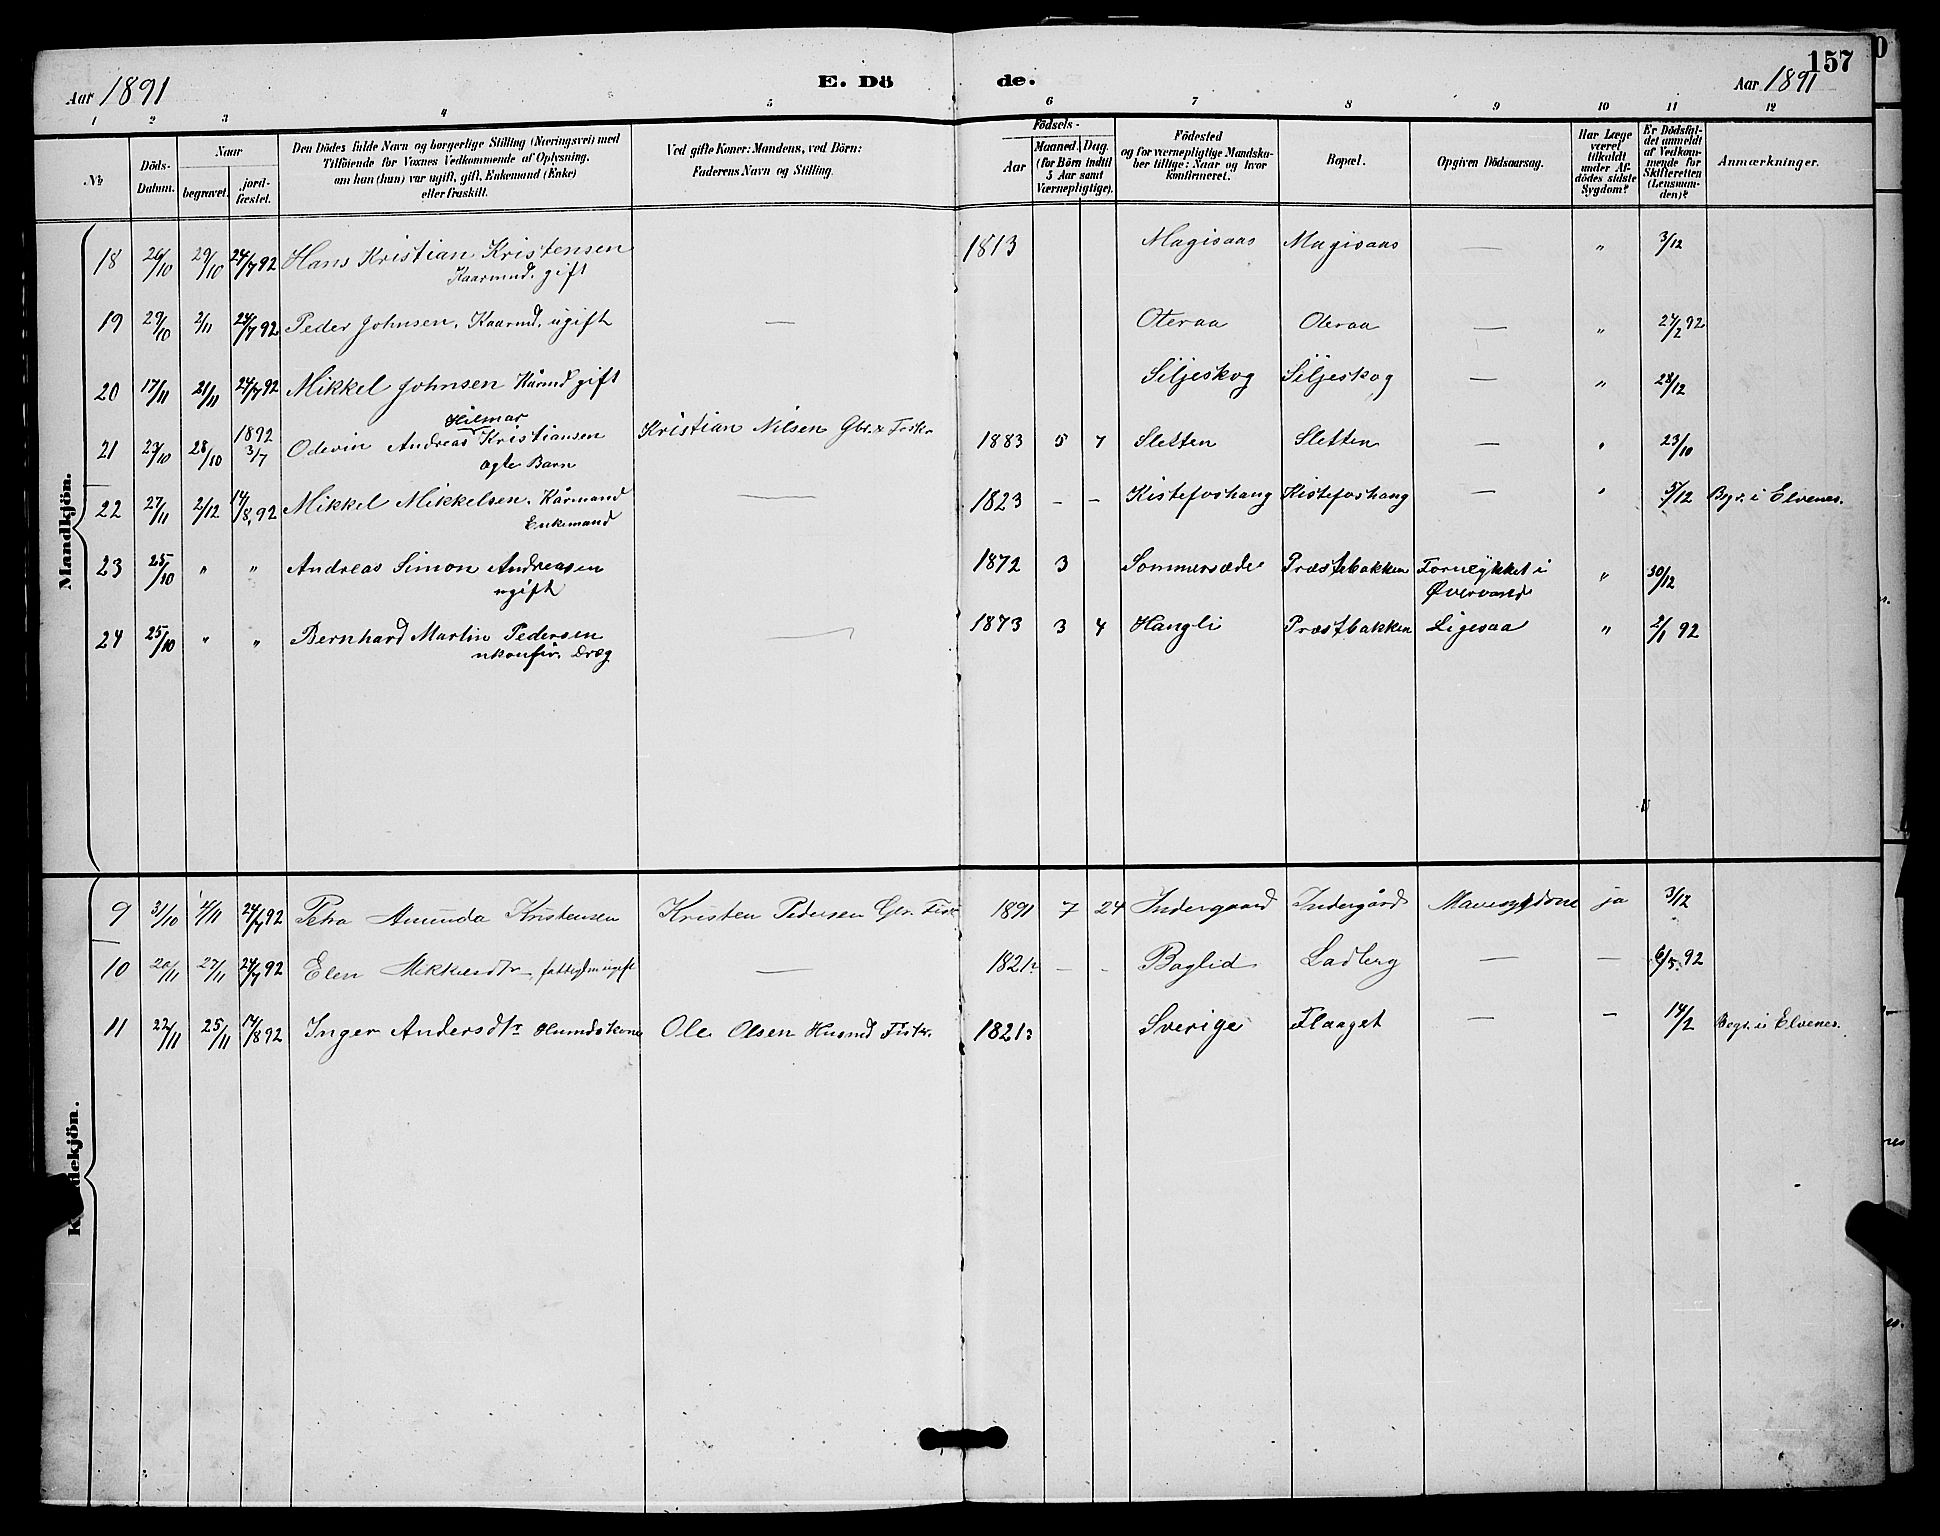 Aar 1891 E. Dö de. Aar 1891 157
1 2 3 4 5 6 7 8 9 10 11 12
№ Döds-Datum. Naar begravet. jord-fæstet. Den Dödes fulde Navn og borgerlige Stilling (Næringsvei) med Tilföiende for Voxnes Vedkommende af Oplysning, om han (hun) var ugift, gift, Enkemand (Enke) eller fraskilt. Ved gifte Koner: Mandens, ved Börn: Faderens Navn og Stilling. Födsels- Aar Maaned. Dag. (for Börn indtil 5 Aar samt Værnepligtige). Födested og for værnepligtige Mandska-ber tillige: Naar og hvor konfirmeret. Bopæl. Opgiven Dödsaarsag. Har Læge været tilkaldt under Af-dödes sidste Sygdom? Er Dödsfal-det anmeldt af Vedkom-mende for Skifteretten (Lensman-den)? Anmærkninger.
Mandkjön.
18 26/10 29/10 24/7 92 Hans Kristian Kristensen 1813 Magisaas Magisaas — „ 3/12
Kaarmnd. gift
19 29/10 2/11 24/7 92 Peder Johnsen. Kaarnd. ugift — Oteraa Oteraa — „ 27/2 92
20 17/11 21/11 24/7 92 Mikkel Johnsen Kårmd gift Siljeskog Siljeskog — „ 28/12
Hilmar
21 23/10 28/10 1892 3/7 Odevin Andreas Kristiansen Kristian Nilsen Gbr. & Fisk. 1883 5 7 Sletten Sletten — „ 23/10
ægte Barn
22 27/11 2/12 14/8 92 Mikkel Mikkelsen. Kårmand — 1823 – – Kistefoshaug Kistefoshaug — „ 5/12 Begr. i Elvenes.
Enkemand
23 25/10 „ „ Andreas Simon Andreasen 1872 3 Sommersæde Præstbakken Forulykket i „ 30/12
ugift Övervand
24 25/10 „ „ Bernhard Martin Pedersen — 1873 3 4 Haugli Præstbakken Ligesaa „ 2/1 92
ukonfir. Dreg
Kvindekjön.
9 31/10 4/11 24/7 92 Petra Amunda Kristensen Kristen Pedersen Gbr. Fisk 1891 7 24 Indergaard Indergård ja 3/12
10 20/11 27/11 24/7 92 Elen Mikkelsdtr fattiglm ugift — 1821 – – Boglid Ladberg — — 6/5 92
11 22/11 25/11 14/8 92 Inger Andersdtr Husmdskone Ole Olsen Husmd Fisk. 1821 Sverige Flaaget — – 14/2 Begr. i Elvenes.